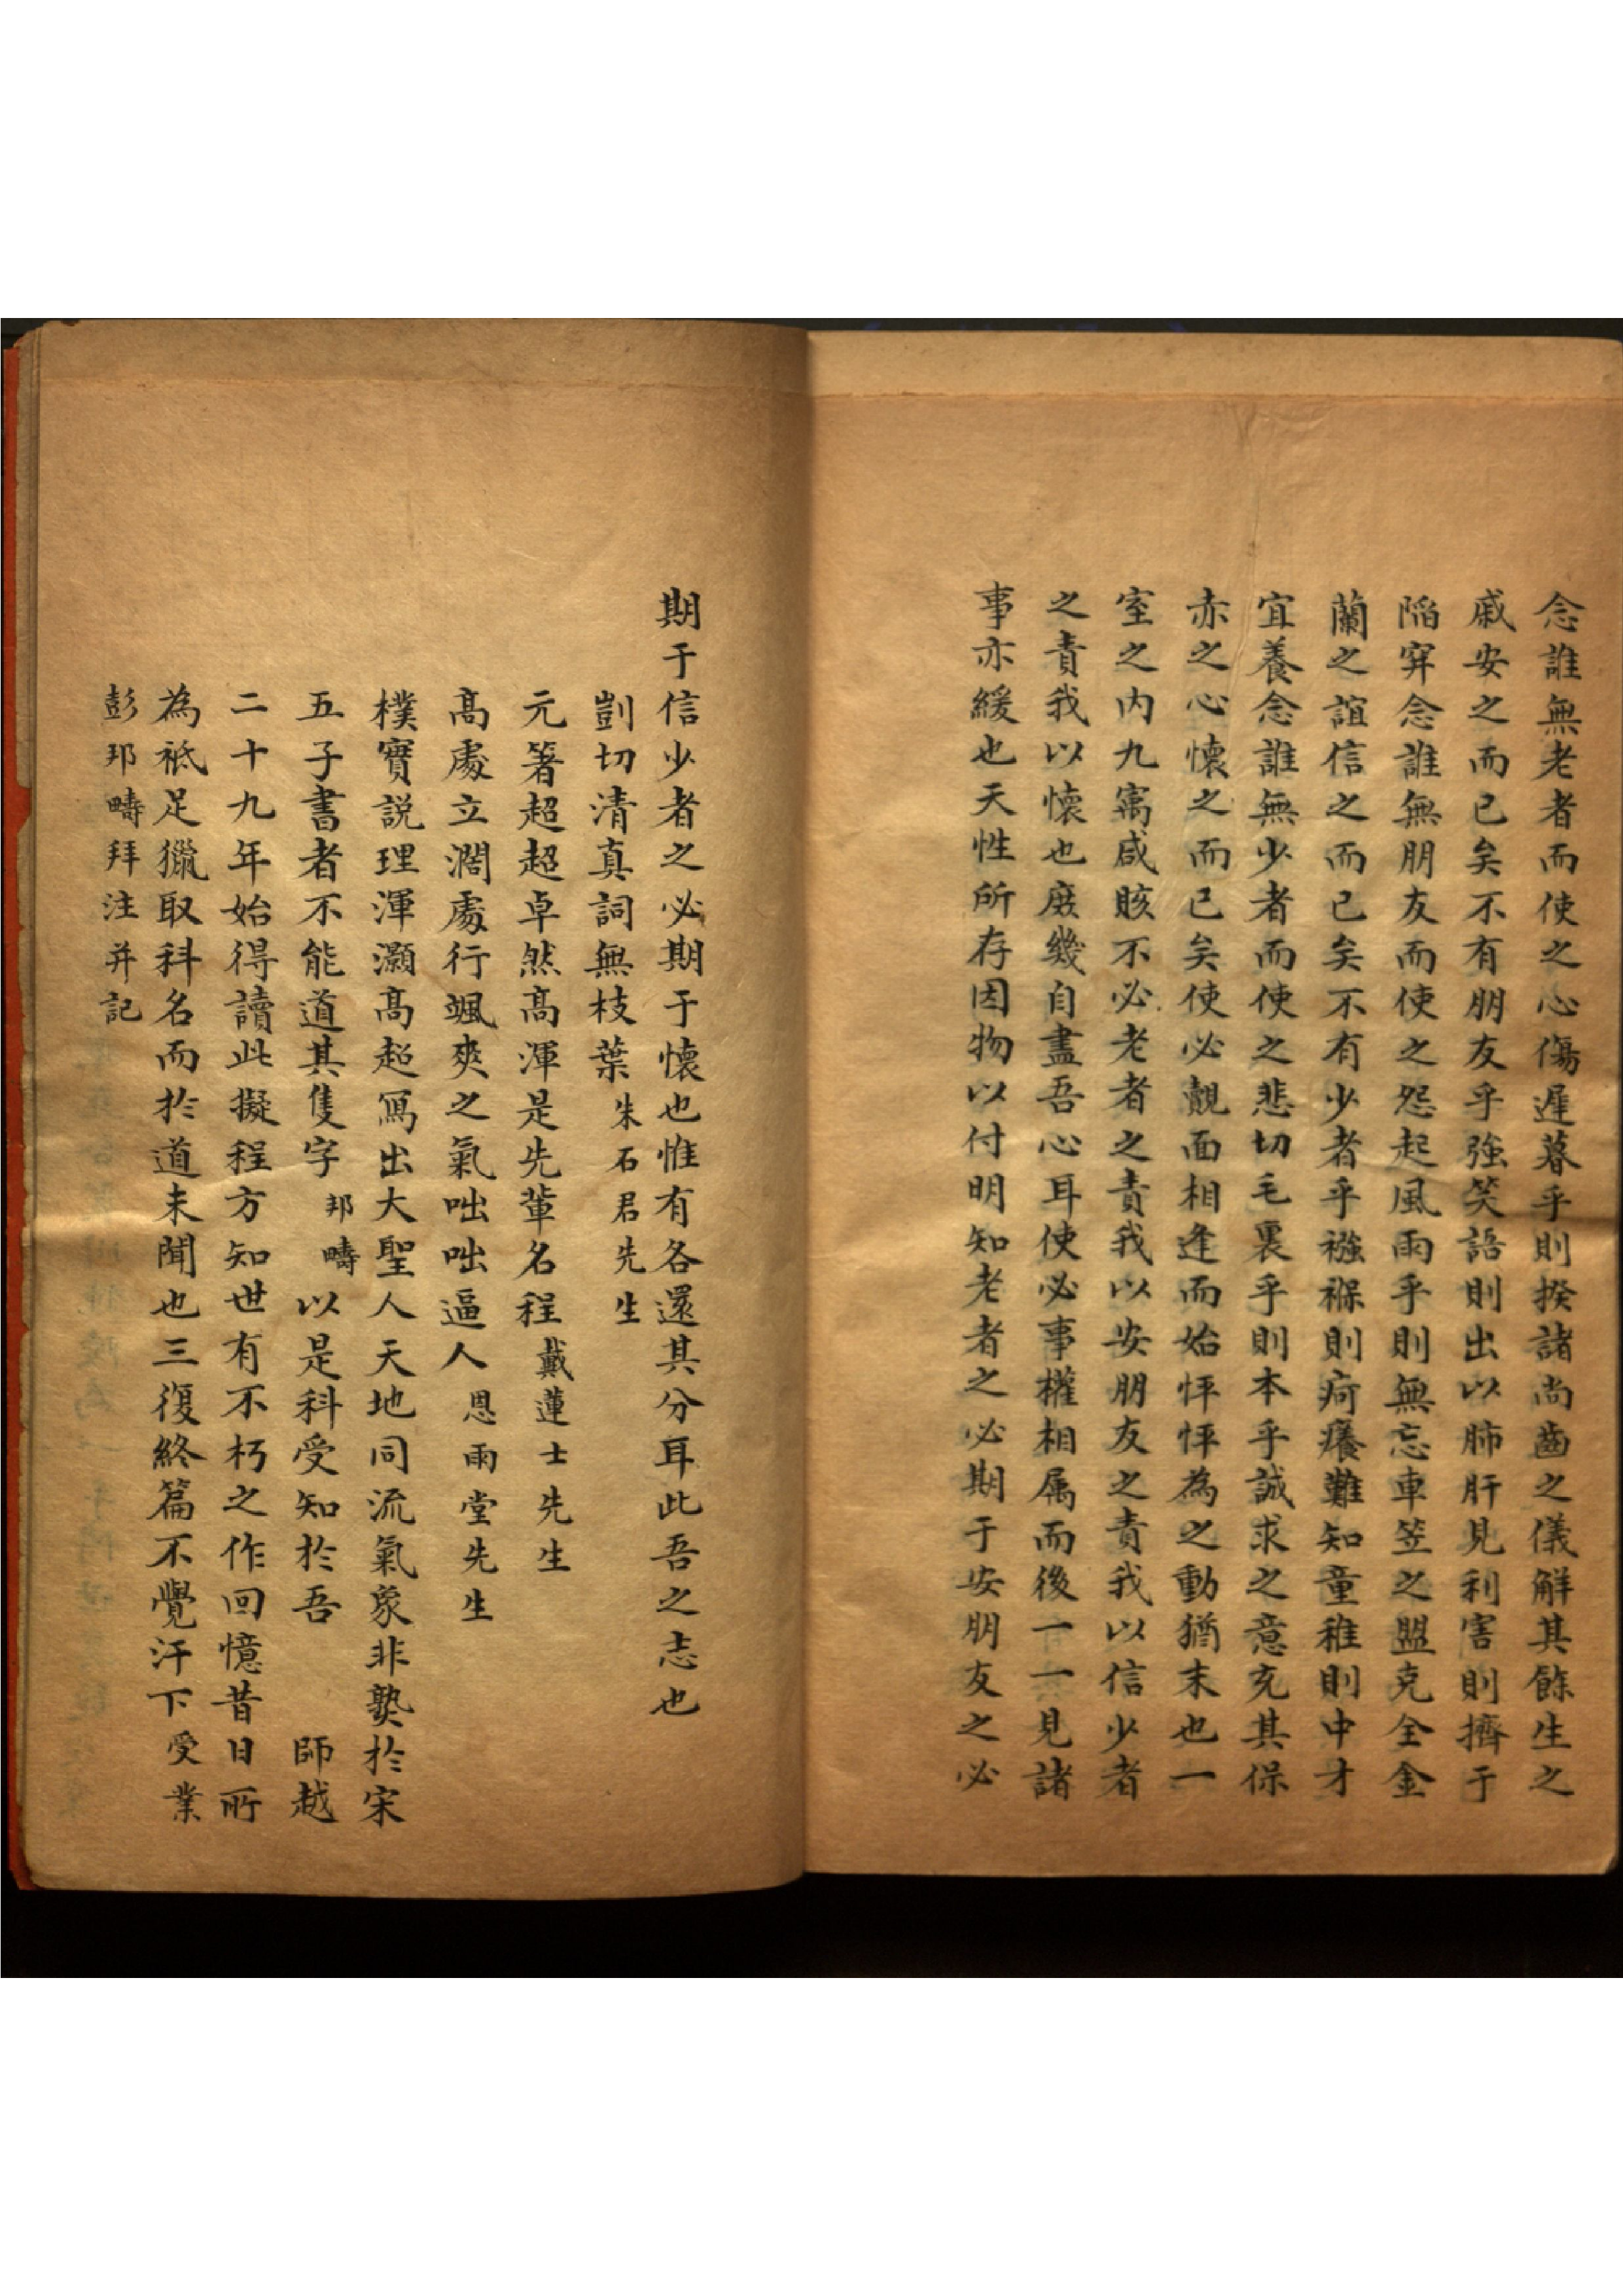 念誰無老者而使之心傷遲暮乎則揆諸尚齒之儀解其餘生之
戚安之而已矣不有朋友乎強笑語則出以肺肝見利害則擠于
陷穽念誰無朋友而使之怨起風雨乎則無忘車笠之盟克全金
蘭之誼信之而已矣不有少者乎襁褓則疴癢難知童稚則中才
宜養念誰無少者而使之悲切毛裏乎則本乎誠求之意充其保
赤之心懷之而已矣使必覿面相逢而始怦怦為之動猶末也一
室之內九寓咸賅不必老者之責我以安朋友之責我以信少者
之責我以懷也庶幾自盡吾心耳使必事權相属而後一一見諸
事亦緩也天性所存因物以付明知老者之必期于安朋友之必
期于信少者之必期于懷也惟有各還其分耳此吾之志也
剴切清真詞無枝葉 朱石君先生
元箸超超卓然高渾是先輩名程 戴蓮士先生
高處立濶處行颯爽之氣咄咄逼人 恩雨堂先生
樸實説理渾灝高超寫出大聖人天地同流氣象非熟於宋
五子書者不能道其隻字 邦疇以是科受知於吾 師越
二十九年始得讀此擬程方知世有不朽之作回憶昔日所
為祇足獵取科名而於道未聞也三復終篇不覺汗下受業
彭邦疇拜注并記